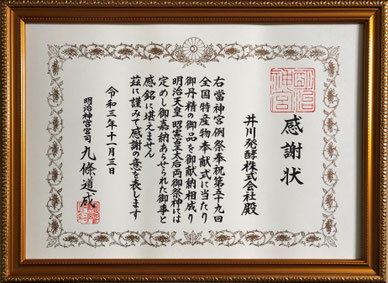 感謝状
明治神宮
井川発酵株式会社殿
右當神宮例祭奉祝第五十九回
全国特産物奉献式に当たり
御丹精の御品を御献納相成り
明治天皇 昭憲皇太后両御祭神には
定めし御嘉納あらせられた御事と
感銘に堪えません
茲に謹みて感謝の意を表します
令和三年十一月三日
明治神宮宮司 九條道成